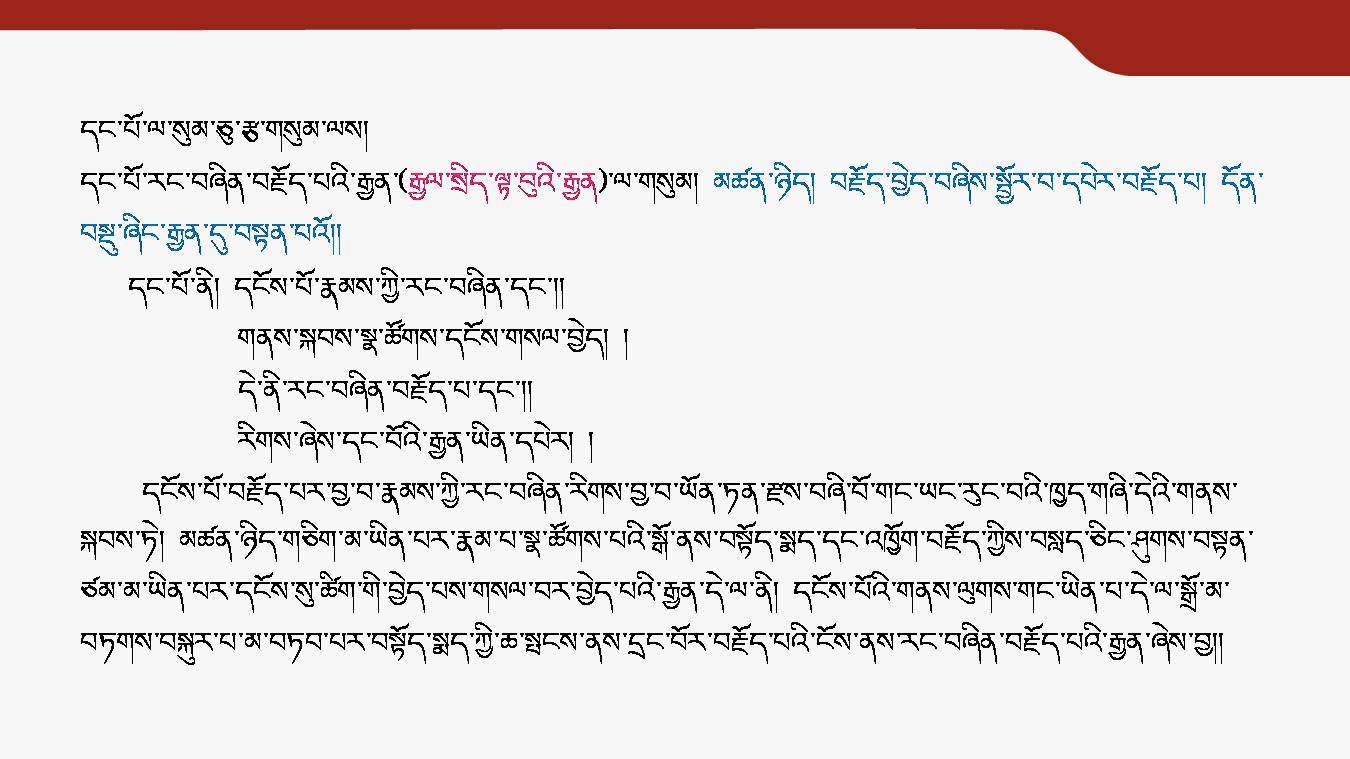 དང་པོ་ལ་སུམ་ཅུ་རྩ་གསུམ་ལས།
དང་པོ་རང་བཞིན་བརྗོད་པའི་རྒྱན་(རྒྱལ་སྲིད་ལྟ་བུའི་རྒྱན)་ལ་གསུམ། མཚན་ཉིད། བརྗོད་བྱེད་བཞིས་སྦྱོར་བ་དཔེར་བརྗོད་པ། དོན་
བསྡུ་ཞིང་རྒྱན་དུ་བསྟན་པའོ།།
དང་པོ་ནི། དངོས་པོ་རྣམས་ཀྱི་རང་བཞིན་དང་།།
གནས་སྐབས་སྣ་ཚོགས་དངོས་གསལ་བྱེད། །
དེ་ནི་རང་བཞིན་བརྗོད་པ་དང་།།
རིགས་ཞེས་དང་པོའི་རྒྱན་ཡིན་དཔེར། །
དངོས་པོ་བརྗོད་པར་བྱ་བ་རྣམས་ཀྱི་རང་བཞིན་རིགས་བྱ་བ་ཡོན་ཏན་རྫས་བཞི་པོ་གང་ཡང་རུང་བའི་ཁྱད་གཞི་དེའི་གནས་
སྐབས་ཏེ། མཚན་ཉིད་གཅིག་མ་ཡིན་པར་རྣམ་པ་སྣ་ཚོགས་པའི་སྒོ་ནས་བསྟོད་སྨད་དང་འཁྱོག་བརྗོད་ཀྱིས་བསླད་ཅིང་ཤུགས་བསྟན་
ཙམ་མ་ཡིན་པར་དངོས་སུ་ཚིག་གི་བྱེད་པས་གསལ་བར་བྱེད་པའི་རྒྱན་དེ་ལ་ནི། དངོས་པོའི་གནས་ལུགས་གང་ཡིན་པ་དེ་ལ་སྒྲོ་མ་
བཏགས་བསྐུར་པ་མ་བཏབ་པར་བསྟོད་སྨད་ཀྱི་ཆ་སྤངས་ནས་དྲང་པོར་བརྗོད་པའི་ངོས་ནས་རང་བཞིན་བརྗོད་པའི་རྒྱན་ཞེས་བྱ།།